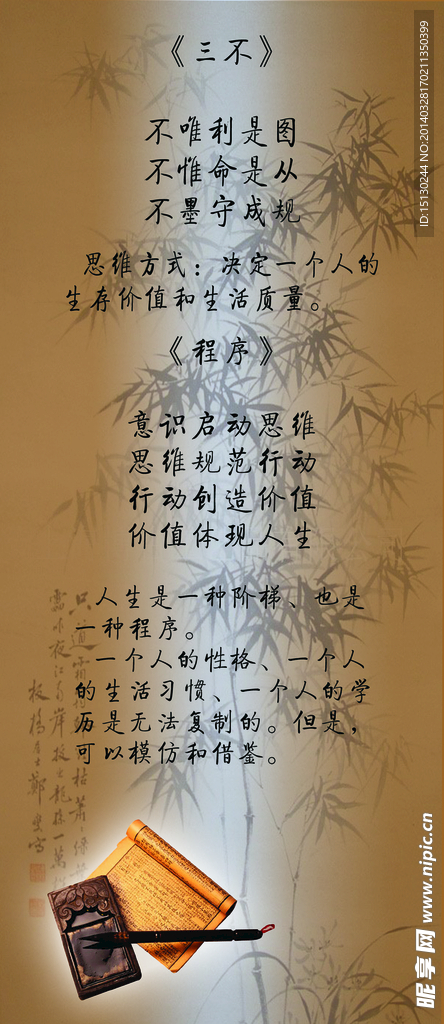 《三不》
不唯利是图
不惟命是从
不墨守成规
思维方式：决定一个人的
生存价值和生活质量。
《程序》
意识启动思维
思维规范行动
行动创造价值
价值体现人生
人生是一种阶梯、也是
一种程序。
一个人的性格、一个人
的生活习惯、一个人的学
历是无法复制的。但是，
可以模仿和借鉴。
ID:15130244 NO:20140328170211350399
昵享网 www.nipic.cn